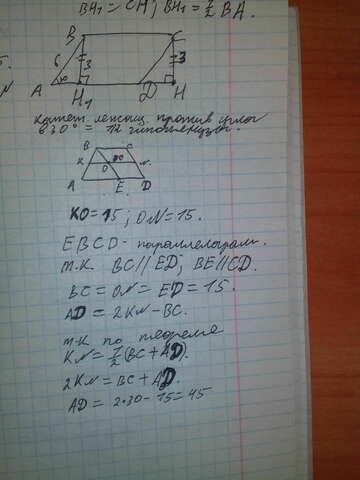 BH₁ = CH; BH₁ = 1/2 BA.
B C
6 3 3
A H₁ D H
N
Катет лежащ. против угла
в 30° = 1/2 гипотенузы.
B C
K O N
A E D
KO = 15; ON = 15.
EBCD - параллелограм.
т.к. BC // ED; BE // CD.
BC = ON = ED = 15.
AD = 2KN - BC.
т.к по теореме
KN = 1/2 (BC + AD).
2KN = BC + AD.
AD = 2•30 - 15 = 45